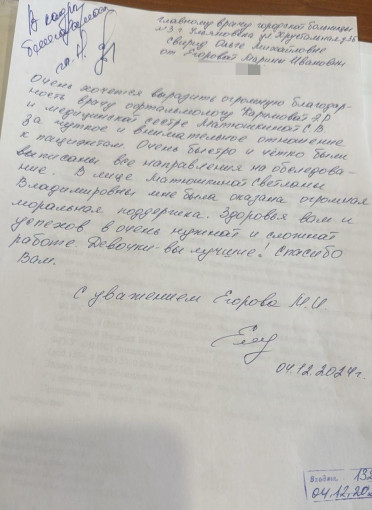 В кадры
благодарность
главному врачу городской больницы
№3 г. Ульяновска ул. Хрустальная д. 3б
Свирид Ольге Михайловне
от Егоровой Марины Ивановны
Очень хочется выразить огромную благодар-
ность врачу офтальмологу Каримовой А.Р
и медицинской сестре Матюшкиной С.В.
за чуткое и внимательное отношение
к пациентам. Очень быстро и чётко были
выписаны все направления на обследова-
ние. В лице Матюшкиной Светланы
Владимировны мне была оказана огромная
моральная поддержка. Здоровья вам и
успехов в очень нужной и сложной
работе. Девочки вы лучшие! Спасибо
Вам.
С уважением Егорова М.И.
04.12.2024г.
Входящ. 132
04.12.20